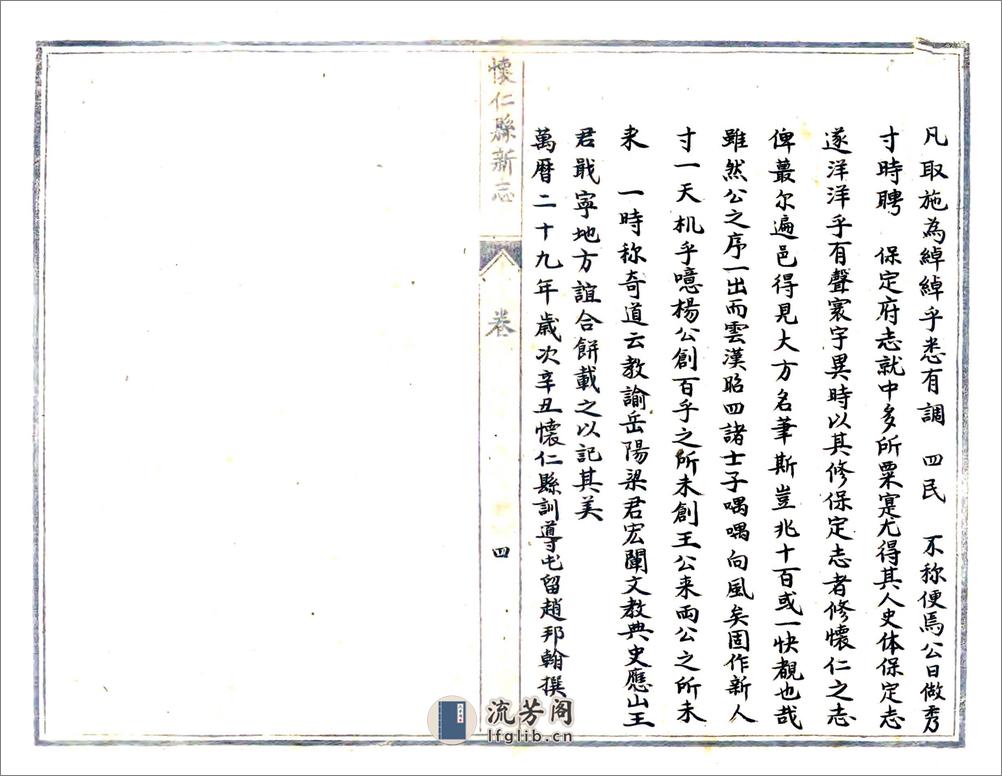 凡取施為綽綽乎悉有調　四民　不称便焉公日做秀
寸時聘　保定府志就中多所粟寔尤得其人史体保定志
遂洋洋乎有聲寰宇異時以其修保定志者修懷仁之志
俾蕞尔遍邑得見大方名筆斯豈兆十百或一快覩也哉
雖然公之序一出而雲漢昭四諸士子喁喁向風矣固作新人
寸一天机乎噫楊公創百乎之所未創王公来両公之所未
来　一時称奇道云教諭岳陽梁君宏闡文教典史應山王
君戢寧地方誼合餅載之以記其美
萬曆二十九年歲次辛丑懷仁縣訓導屯留趙邦翰撰
懷仁縣新志
卷
四
流芳阁
lfglib.cn